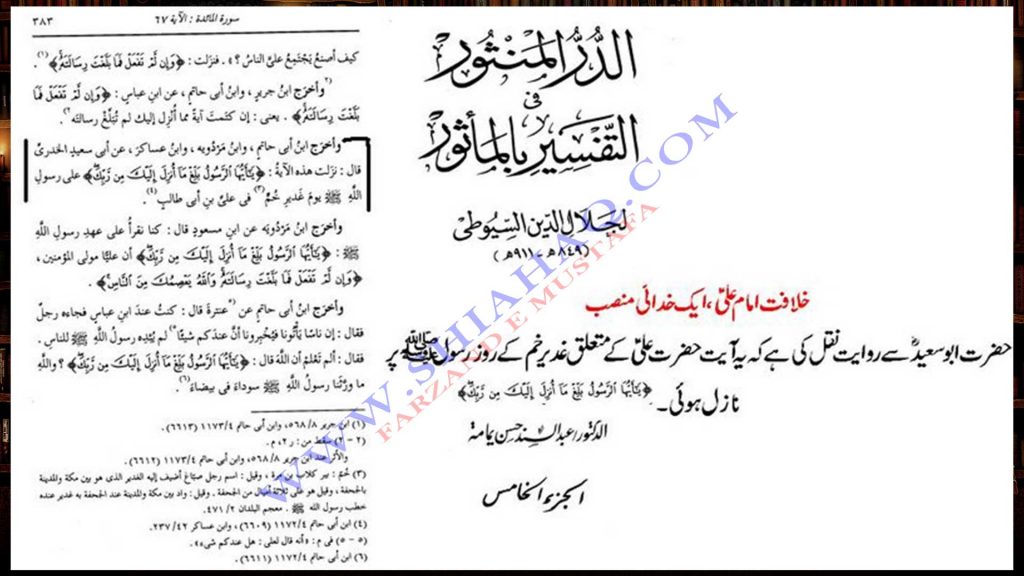 سورة المائدة : الآية ٦٧
٣٨٣
كيف أصنعُ يَجْتَمِعُ علىَّ الناسُ ؟ » . فنزلت : ﴿وَإِن لَّمْ تَفْعَلْ فَمَا بَلَّغْتَ رِسَالَتَهُۥ﴾ (١) .
وأخرَج ابنُ جريرٍ ، وابنُ أبى حاتمٍ ، عن ابنِ عباسٍ : ﴿وَإِن لَّمْ تَفْعَلْ فَمَا
بَلَّغْتَ رِسَالَتَهُۥ﴾ . يعنى : إن كتَمتَ آيةً مما أُنزِل إليك لم تُبَلِّغْ رسالته .
وأخرَج ابنُ أبى حاتمٍ ، وابنُ مَرْدُويه ، وابنُ عساكرَ ، عن أبى سعيدٍ الخدرىِّ
قال : نزَلت هذه الآيةُ : ﴿يَٰٓأَيُّهَا ٱلرَّسُولُ بَلِّغْ مَآ أُنزِلَ إِلَيْكَ مِن رَّبِّكَ﴾ على رسولِ
اللَّهِ ﷺ يومَ غَديرِ خُمٍّ (٣) فى علىِّ بنِ أبى طالبٍ (٤) .
وأخرَج ابنُ مَرْدُويه عن ابنِ مسعودٍ قال : كنا نقرَأُ على عهدِ رسولِ اللَّهِ
ﷺ : ﴿يَٰٓأَيُّهَا ٱلرَّسُولُ بَلِّغْ مَآ أُنزِلَ إِلَيْكَ مِن رَّبِّكَ﴾ أن عليًّا مولى المؤمنين ،
﴿وَإِن لَّمْ تَفْعَلْ فَمَا بَلَّغْتَ رِسَالَتَهُۥ وَٱللَّهُ يَعْصِمُكَ مِنَ ٱلنَّاسِ﴾ .
وأخرَج ابنُ أبى حاتمٍ عن عنترةَ قال : كنتُ عندَ ابنِ عباسٍ فجاءه رجلٌ
فقال : إن ناسًا يأتُونا فيُخبِرونا أن عندَكم شيئًا لم يُبْدِه رسولُ اللَّهِ ﷺ للناسِ .
فقال : ألم تعلمْ أن اللَّهَ قال : ﴿يَٰٓأَيُّهَا ٱلرَّسُولُ بَلِّغْ مَآ أُنزِلَ إِلَيْكَ مِن رَّبِّكَ﴾ ؟ واللَّهِ
ما ورَّثَنا رسولُ اللَّهِ ﷺ سوداءَ فى بيضاءَ (٦) .
(١) ابن جرير ٥٦٨/٨، وابن أبى حاتم ١١٧٣/٤ (٦٦١٣) .
(٢ - ٢) سقط من : ر ٢، م .
والأثر عند ابن جرير ٥٦٨/٨، وابن أبى حاتم ١١٧٣/٤ (٦٦١٢) .
(٣) خُمّ : بير كلاب بن مرة ، وقيل : اسم رجل صبّاغ أضيف إليه الغدير الذى هو بين مكة والمدينة
بالجحفة ، وقيل هو على ثلاثة أميال من الجحفة . وقيل : واد بين مكة والمدينة عند الجحفة به غدير عنده
خطب رسول الله ﷺ . معجم البلدان ٤٧١/٢ .
(٤) ابن أبى حاتم ١١٧٢/٤ (٦٦٠٩) ، وابن عساكر ٢٣٧/٤٢ .
(٥ - ٥) فى م : « أنه قال لعلى : هل عندكم شىء » .
(٦) ابن أبى حاتم ١١٧٢/٤ (٦٦١١) .
الدُّرُّ المَنْثُور
فى
التَّفْسِيرِ بِالْمَأْثُور
لجلال الدين السيوطى
(٨٤٩هـ - ٩١١هـ)
خلافت امام علیؑ، ایک خدائی منصب
حضرت ابو سعیدؓ سے روایت نقل کی ہے کہ یہ آیت حضرت علیؓ کے متعلق غدیر خم کے روز رسول ﷺ پر
﴿يَٰٓأَيُّهَا ٱلرَّسُولُ بَلِّغْ مَآ أُنزِلَ إِلَيْكَ مِن رَّبِّكَ﴾ نازل ہوئی۔
الدكتور / عبد السند حسن يمامة
الجزء الخامس
WWW.SHIAHAQ.COM
FARZAND E MUSTAFA